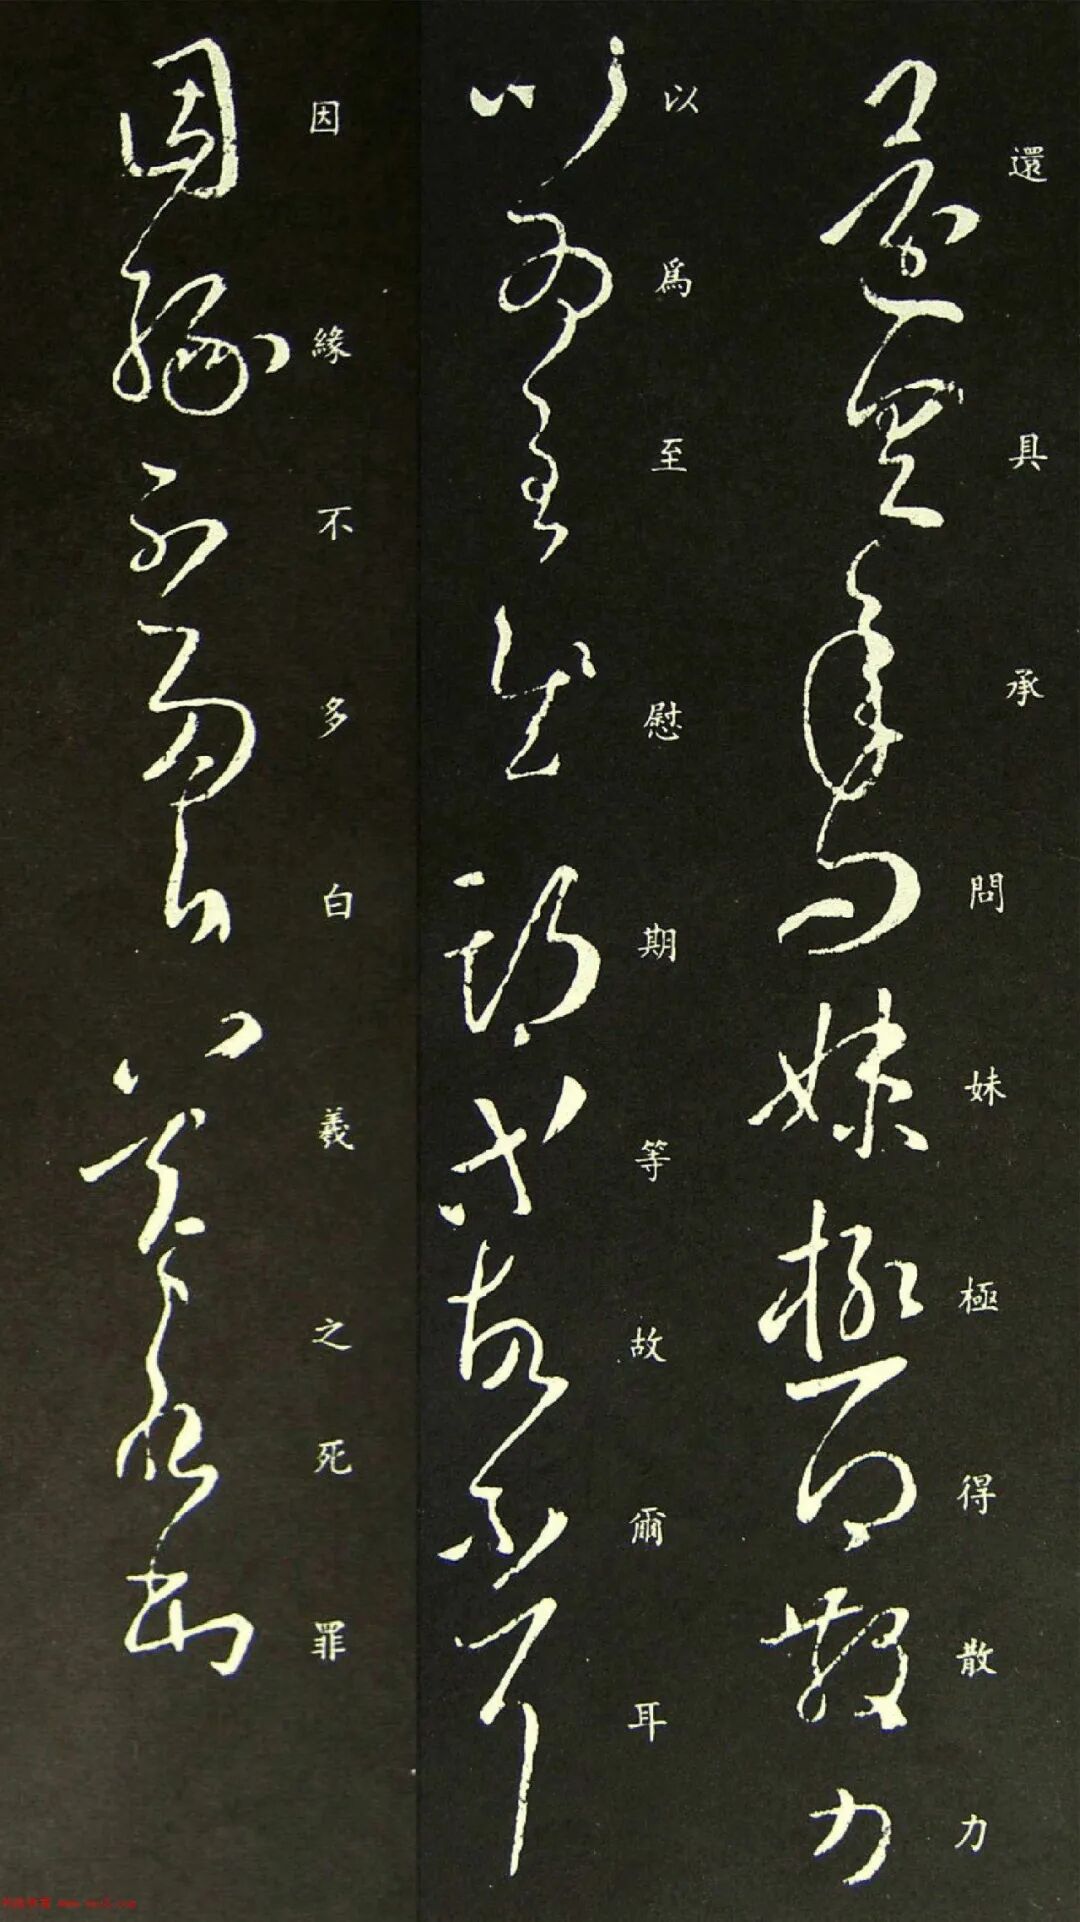 還具承問妹極得散力
以為至慰期等故爾耳
因緣不多白羲之死罪